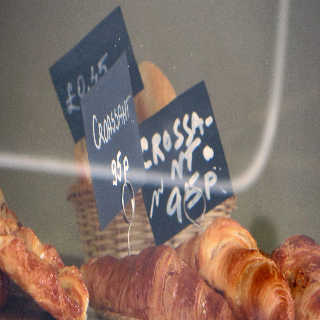 £0.45
CROISSANT
95p
CROSSA-
NT.
95p.